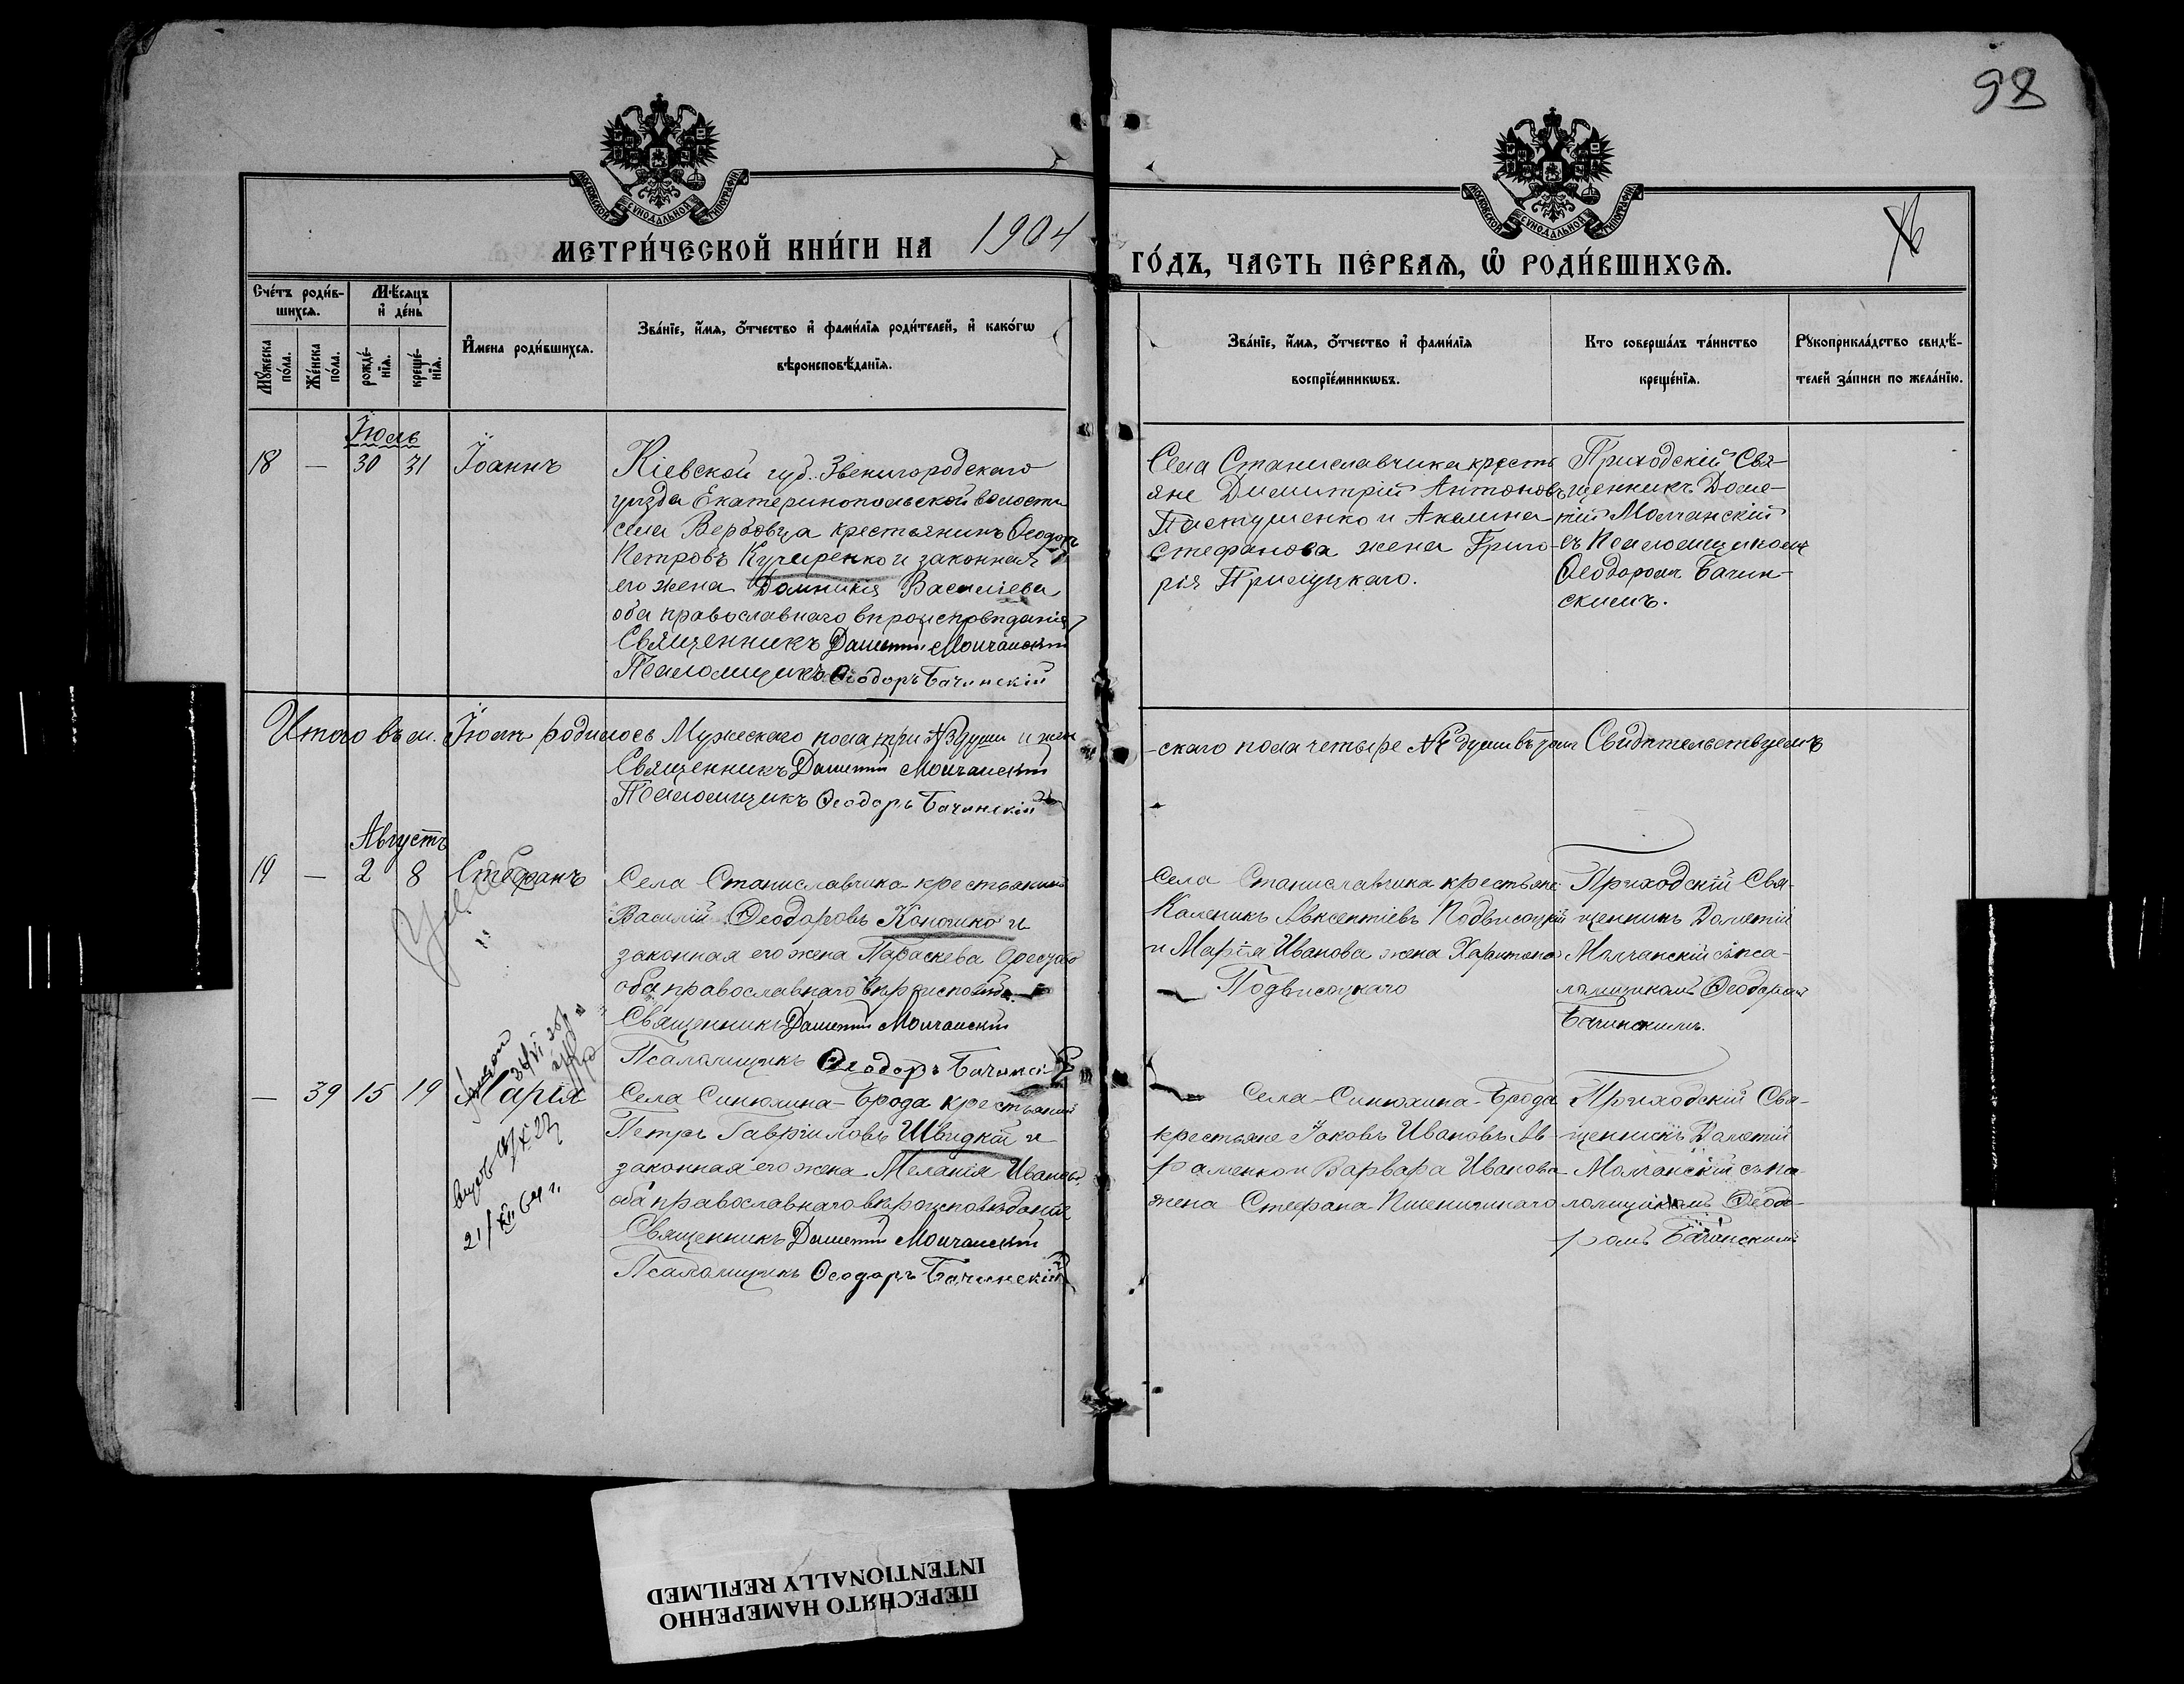 98
МОСКОВСКОЙ СѴНОДАЛЬНОЙ ТИПОГРАФІИ
МЕТРИ́ЧЕСКОЙ КНИ́ГИ НА 1904
МОСКОВСКОЙ СѴНОДАЛЬНОЙ ТИПОГРАФІИ
ГО́ДЪ, ЧАСТЬ ПЕ́РВАѦ, Ѡ РОДИ́ВШИХСѦ.
Сче́тъ роди́в-
шихсѧ.
Мꙋ́жеска по́ла.
Же́нска по́ла.
Мѣ́сѧцъ
и҆ де́нь
рожде́-
нїѧ.
креще́-
нїѧ.
И҆мена роди́вшихсѧ.
Зва́нїе, и҆́мѧ, ѻ҆́тчество и҆ фами́лїѧ роди́телей, и҆ како́гѡ
вѣроисповѣ́данїѧ.
Зва́нїе, и҆́мѧ, ѻ҆́тчество и҆ фами́лїѧ
воспрїе́мникѡвъ.
Кто соверша́лъ та́инство
креще́нїѧ.
Рꙋкоприкла́дство свидѣ́-
телей за́писи по жела́нїю.
Іюль
18 — 30 31 Іоаннъ
Кіевской губ. Звенигородскаго
уѣзда Екатеринопольской волости
села Вербовца крестьянинъ Ѳеодоръ
Петровъ Кучеренко и законная
его жена Домникія Василіева
оба православнаго вѣроисповѣданія
Священникъ Дометій Молчанскій
Псаломщикъ Ѳеодоръ Бачинскій
Села Станиславчика кресть
яне Димитрій Антоновъ
Пастушенко и Акилина
Стефанова жена Григо-
рія Прилуцкаго.
Приходскій Свя-
щенникъ Доме-
тій Молчанскій
съ Псаломщикомъ
Ѳеодоромъ Бачин-
скимъ.
Итого въ м. Іюлѣ родилось Мужескаго пола три души и жен
-скаго пола четыре души въ томъ Свидѣтельствуемъ
Священникъ Дометій Молчанскій
Псаломщикъ Ѳеодоръ Бачинскій
Августъ
19 — 2 8 Стефанъ
Села Станиславчика крестьянинъ
Василій Ѳеодоровъ Кононко и
законная его жена Параскева
оба православнаго вѣроисповѣд.
Священникъ Дометій Молчанскій
Псаломщикъ Ѳеодоръ Бачинскі
Села Станиславчика крестьяне
Каленикъ Авксентіевъ Подвисоцкій
и Марія Иванова жена Харитона
Подвисоцкаго
Приходскій Свя-
щенникъ Дометій
Молчанскій съ пса-
ломщикомъ Ѳеодоромъ
Бачинскимъ.
— 39 15 19 Марія
21/XII 64 г.
Села Синюхина-Брода крестьянинъ
Петръ Гавріиловъ Швидкій и
законная его жена Меланія Иванова
оба православнаго вѣроисповѣданія
Священникъ Дометій Молчанскій
Псаломщикъ Ѳеодоръ Бачинскій
Села Синюхина-Брода
крестьяне Іаковъ Ивановъ Ав-
раменко и Варвара Иванова
жена Стефана Пшеничнаго
Приходскій Свя-
щенникъ Дометій
Молчанскій съ пса
ломщикомъ Ѳеодо-
ромъ Бачинскимъ
ПЕРЕСНЯТО НАМЕРЕННО
INTENTIONALLY REFILMED